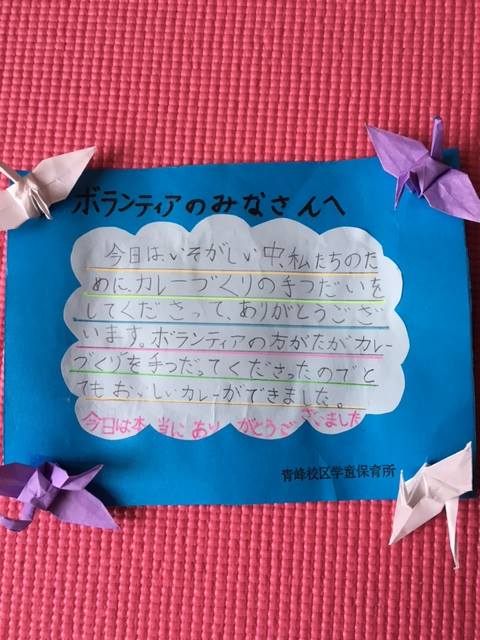 ボランティアのみなさんへ
今日は、いそがしい中、私たちのた
めに、カレーづくりの手つだいを
してくださって、ありがとうござ
います。ボランティアの方がたがカレー
づくりを手つだってくださったのでと
てもおいしいカレーができました。
今日は本当にありがとうございました
青峰校区学童保育所